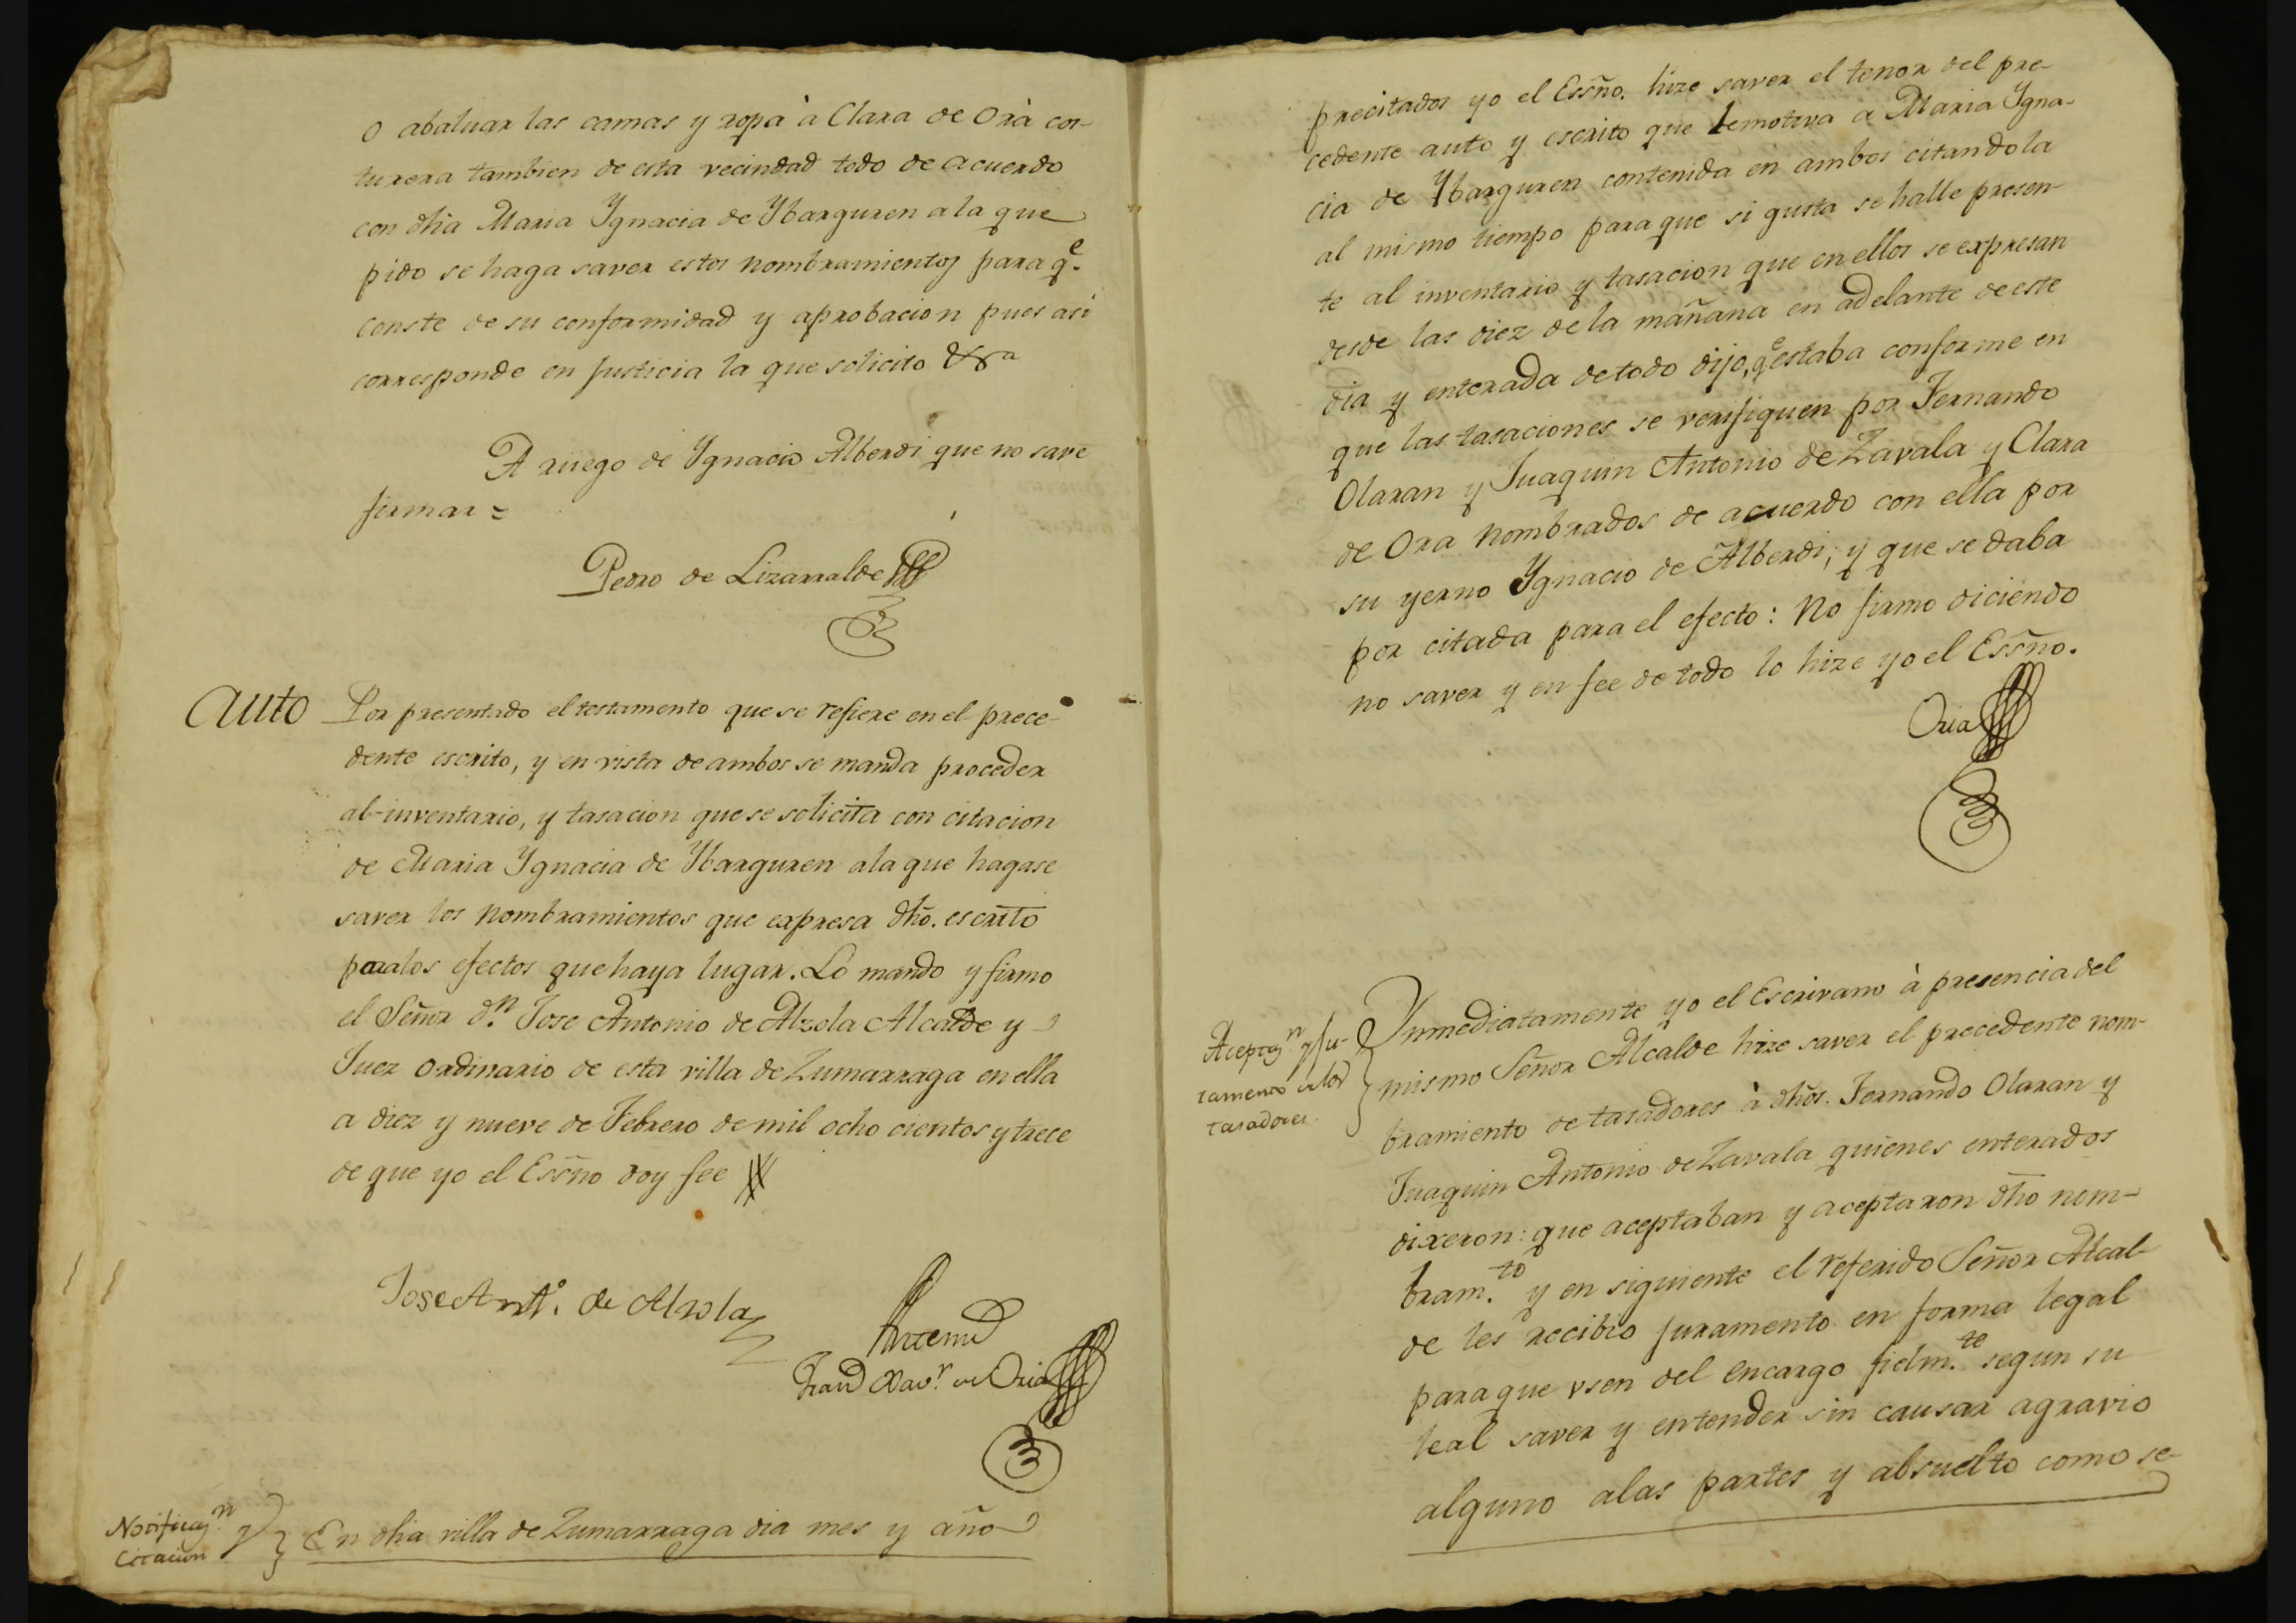 o abaluar las camas y ropa à Clara de Orà cos-
turera tambien de esta vecindad todo de acuerdo
con dha Maria Ygnacia de Ybarguren a la que
pido se haga saver estos nombramientos para q.e
conste de su conformidad y aprobacion pues asi
corresponde en justicia la que solicito &ra
A ruego de Ygnacio Alberdi que no save
firmar =
Pedro de Lizarralde
Auto
Por presentado el testamento que se refiere en el prece-
dente escrito, y en vista de ambos se manda proceder
al inventario, y tasacion que se solicita con citacion
de Maria Ygnacia de Ybarguren a la que hagase
saver los nombramientos que expresa dho. escrito
para los efectos que haya lugar. Lo mando y firmo
el Señor d.n Jose Antonio de Alzola Alcalde y
Juez ordinario de esta villa de Zumarraga en ella
a diez y nueve de Febrero de mil ocho cientos y trece
de que yo el Essño doy fee
Jose Ant.o de Alzola
Antemi
Fran.co Xav.r de Oria
Notificaz.n y
Citacion
En dha villa de Zumarraga dia mes y año
precitados yo el Essño. hize saver el tenor del pre-
cedente auto y escrito que lemotiva a Maria Ygna-
cia de Ybarguren contenida en ambos citandola
al mismo tiempo para que si gusta se halle presen-
te al inventario y tasacion que en ellos se expresan
desde las diez de la mañana en adelante de este
dia y enterada de todo dijo, q.e estaba conforme en
que las tasaciones se verifiquen por Fernando
Olaran y Juaquin Antonio de Zavala y Clara
de Ora nombrados de acuerdo con ella por
su yerno Ygnacio de Alberdi; y que se daba
por citada para el efecto: No firmo diciendo
no saver y en fee de todo lo hize yo el Essño.
Oria
Aceptaz.n y ju-
ramento de los
tasadores
Ynmediatamente yo el Escrivano à presencia del
mismo Señor Alcalde hize saver el precedente nom-
bramiento de tasadores à dhos. Fernando Olaran y
Juaquin Antonio de Zavala quienes enterados
dixeron: que aceptaban y aceptaron dho nom-
bram.to y en siguiente el referido Señor Alcal-
de les recibio juramento en forma legal
para que vsen del encargo fielm.te segun su
leal saver y entender sin causar agravio
alguno a las partes y absuelto como se-